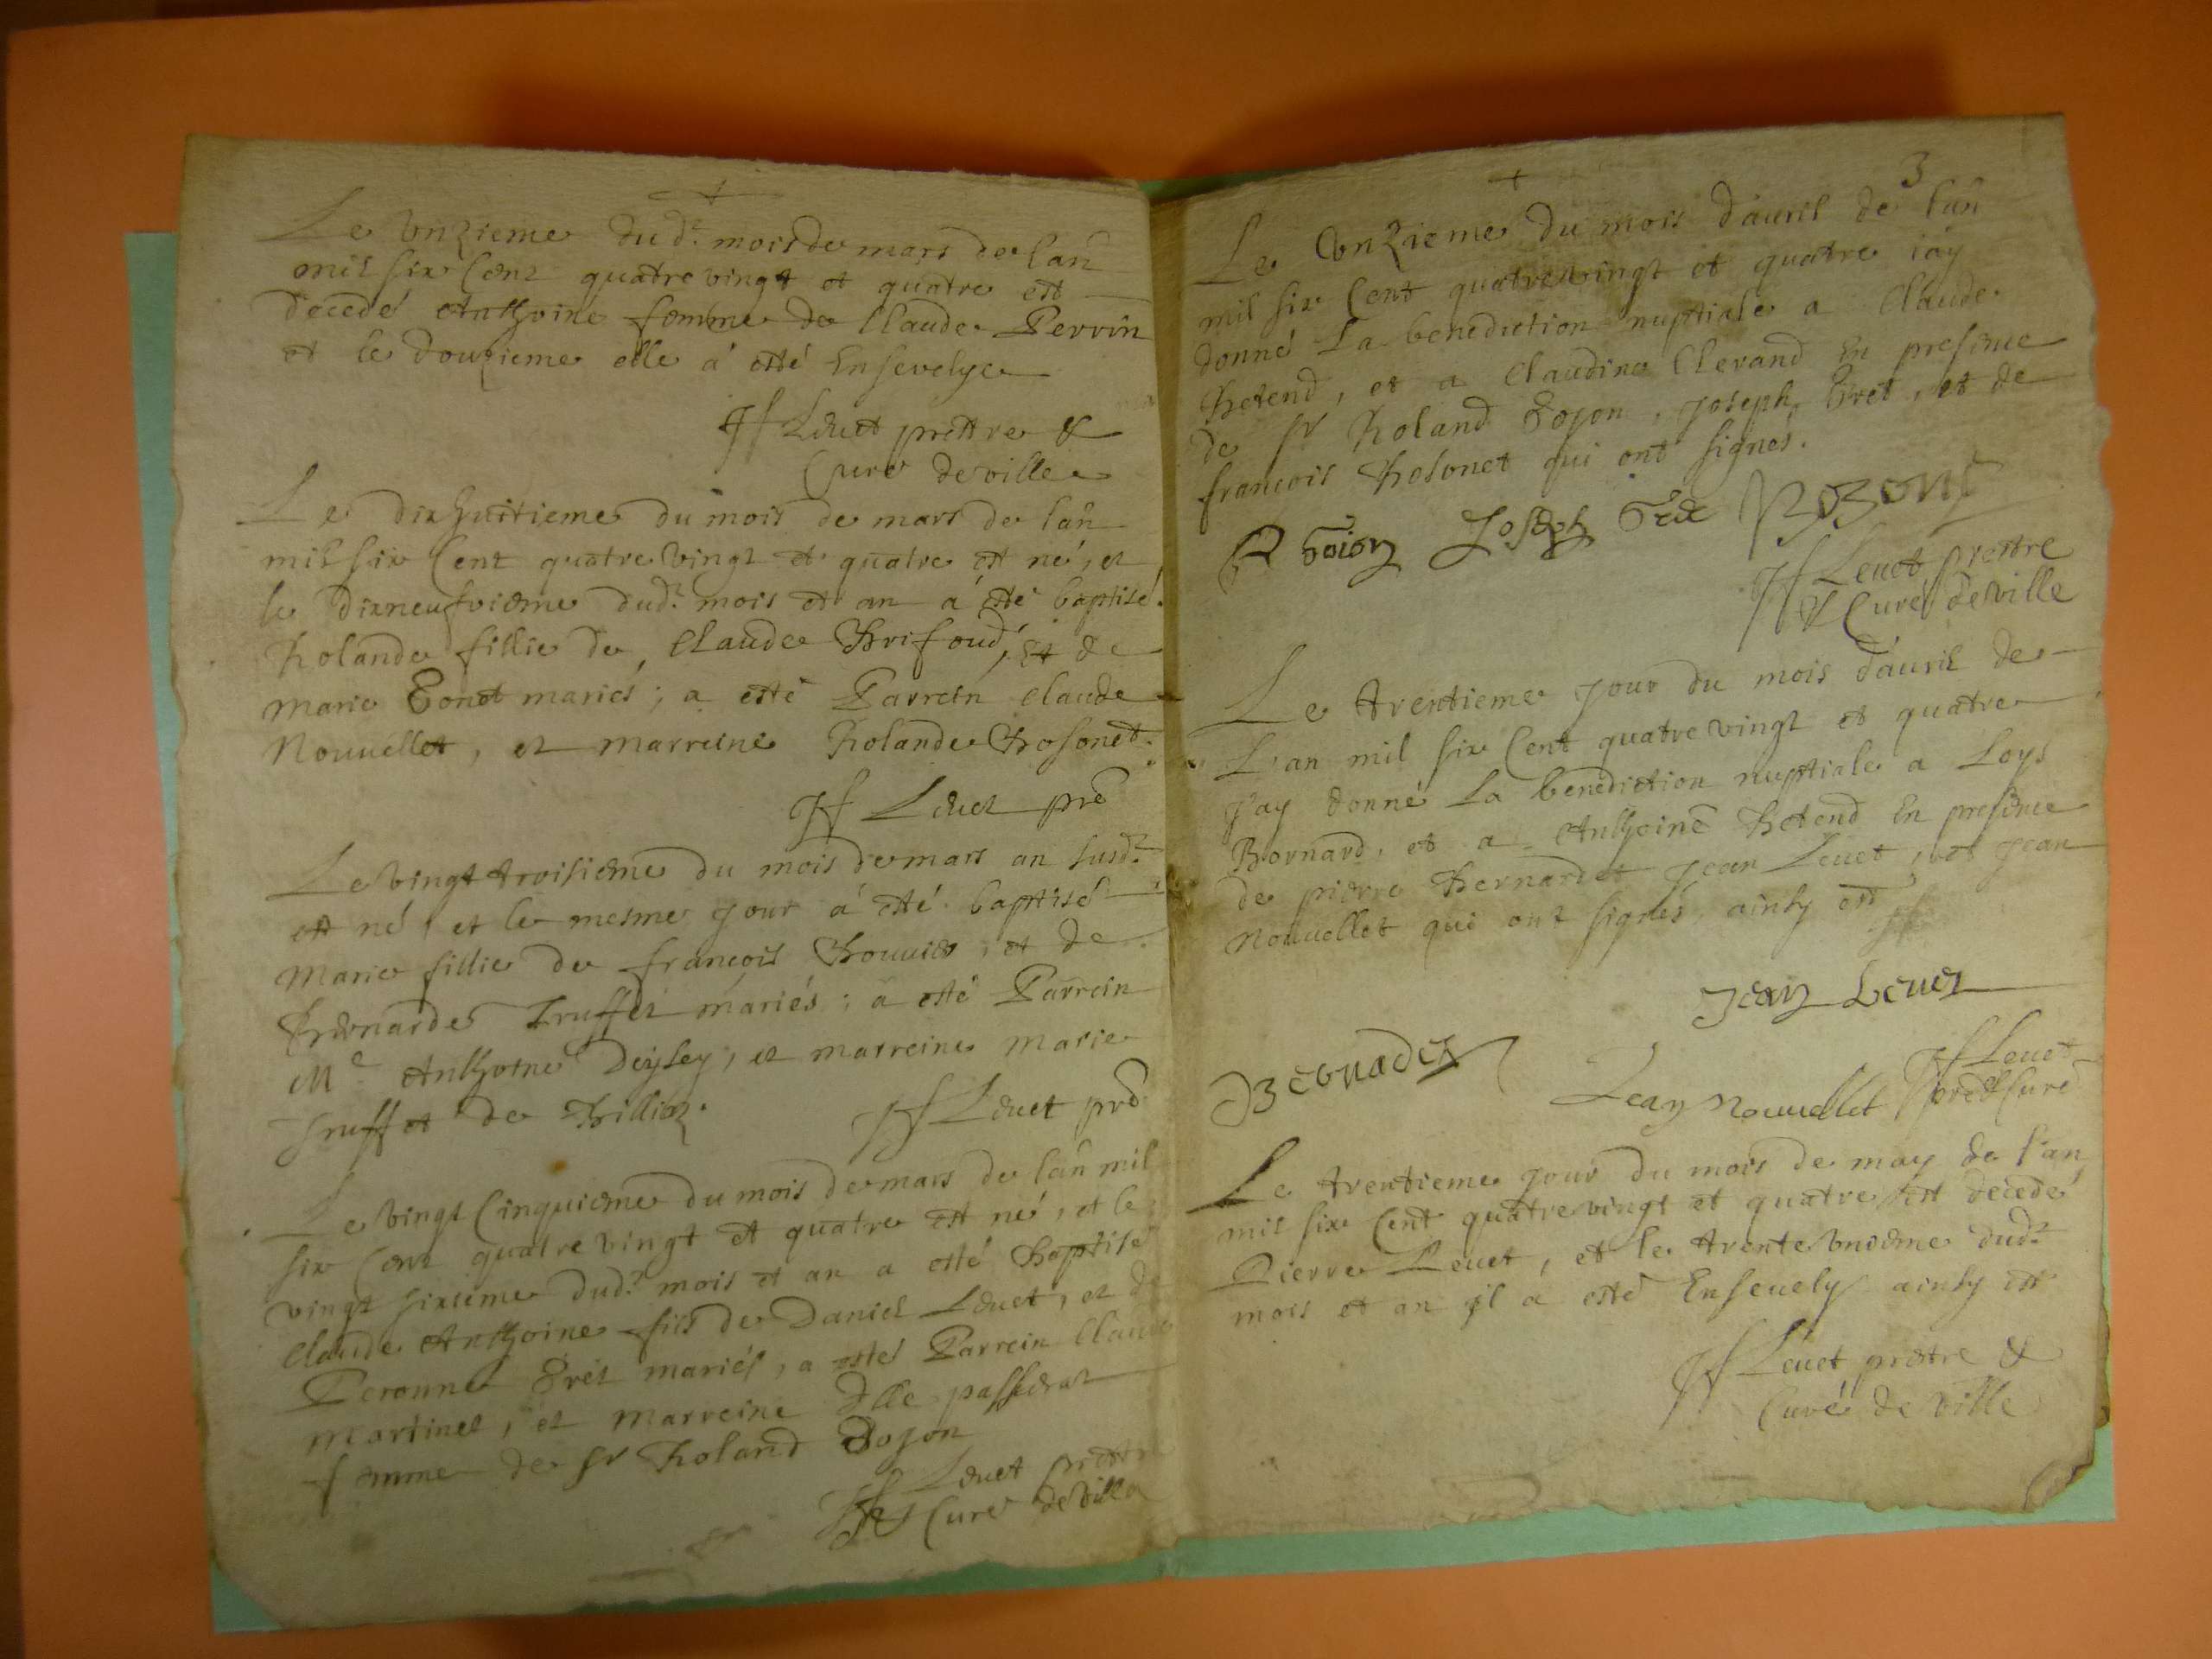 Le vnzieme dud.t mois de mars de lan
mil six cent quatre vingt et quatre est
decedé Anthoine femme de Claude Perrin
et le douzieme elle à esté Ensevelye
JF Levet prettre &
Curé de ville
Le dixhuitieme du mois de mars de lan
mil six Cent quatre vingt et quatre est né, et
le dixneufvieme dud.t mois et an à esté baptisé
Rolande fillie de Claude et de
marie mariés; a esté Parrein Claude
Nouvellet, et marreine Rolande Rosonet.
JF Levet pre
Le vingt troisieme du mois de mars an susd.t
est né et le mesme jour à esté baptisé
Marie fillie de françois et de
Bernarde Truffet mariés; a esté Parrein
M.e Anthoine et marreine Marie
Truffet de
JF Levet pre
Le vingt Cinquieme du mois de mars de lan mil
six Cent quatre vingt et quatre est né, et le
vingt sixieme dud.t mois et an a esté Baptisé
Claude Anthoine fils de Daniel Levet, et de
Peronne mariés, a esté Parrein Claude
Martinet, et marreine dlle passerat
femme de sr Roland
JF Levet prettre
& Curé de ville
3
Le vnzieme du mois d'auril de lan
mil six Cent quatre vingt et quatre iay
donné La benediction nuptiale a Claude
Retend, et a Claudine Clerand En presence
de sr Roland Joseph et de
françois Rosonet qui ont signés.
Joseph
JF Levet prettre
& Curé de ville
Le trentieme jour du mois d'auril de
L'an mil six Cent quatre vingt et quatre
J'ay donné La benediction nuptiale a Loys
Bornard, et a Anthoine Retend En presence
de pierre Bernardet Jean Levet, et Jean
Nouvellet qui ont signés, ainsy est
Jean Levet
Bernadet
Jean Nouvellet
JF Levet
pre & Curé
Le trentieme jour du mois de may de l'an
mil six Cent quatre vingt et quatre est decedé
Pierre Levet, et le trente vnieme dud.t
mois et an il a esté Enseuely ainsy est
JF Levet prettre &
Curé de ville